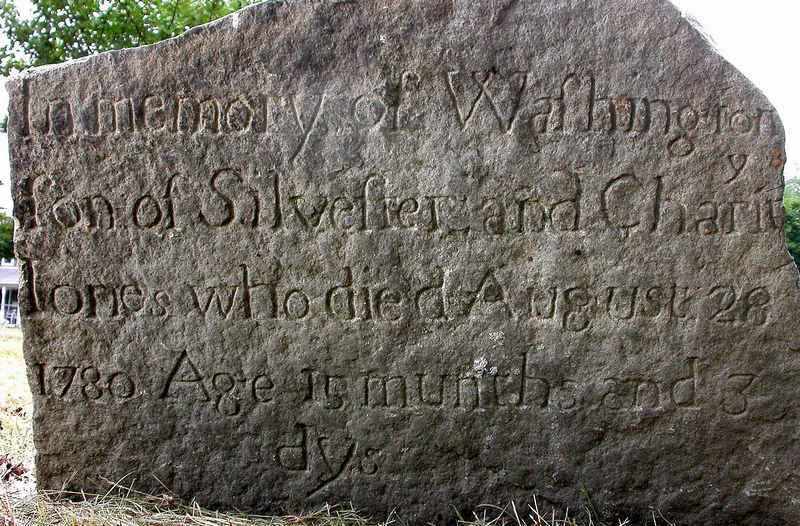 In memory of Waſhington
ſon of Silveſter and Charity
Iones who died August 28
1780 Age 15 munths and 3
dys